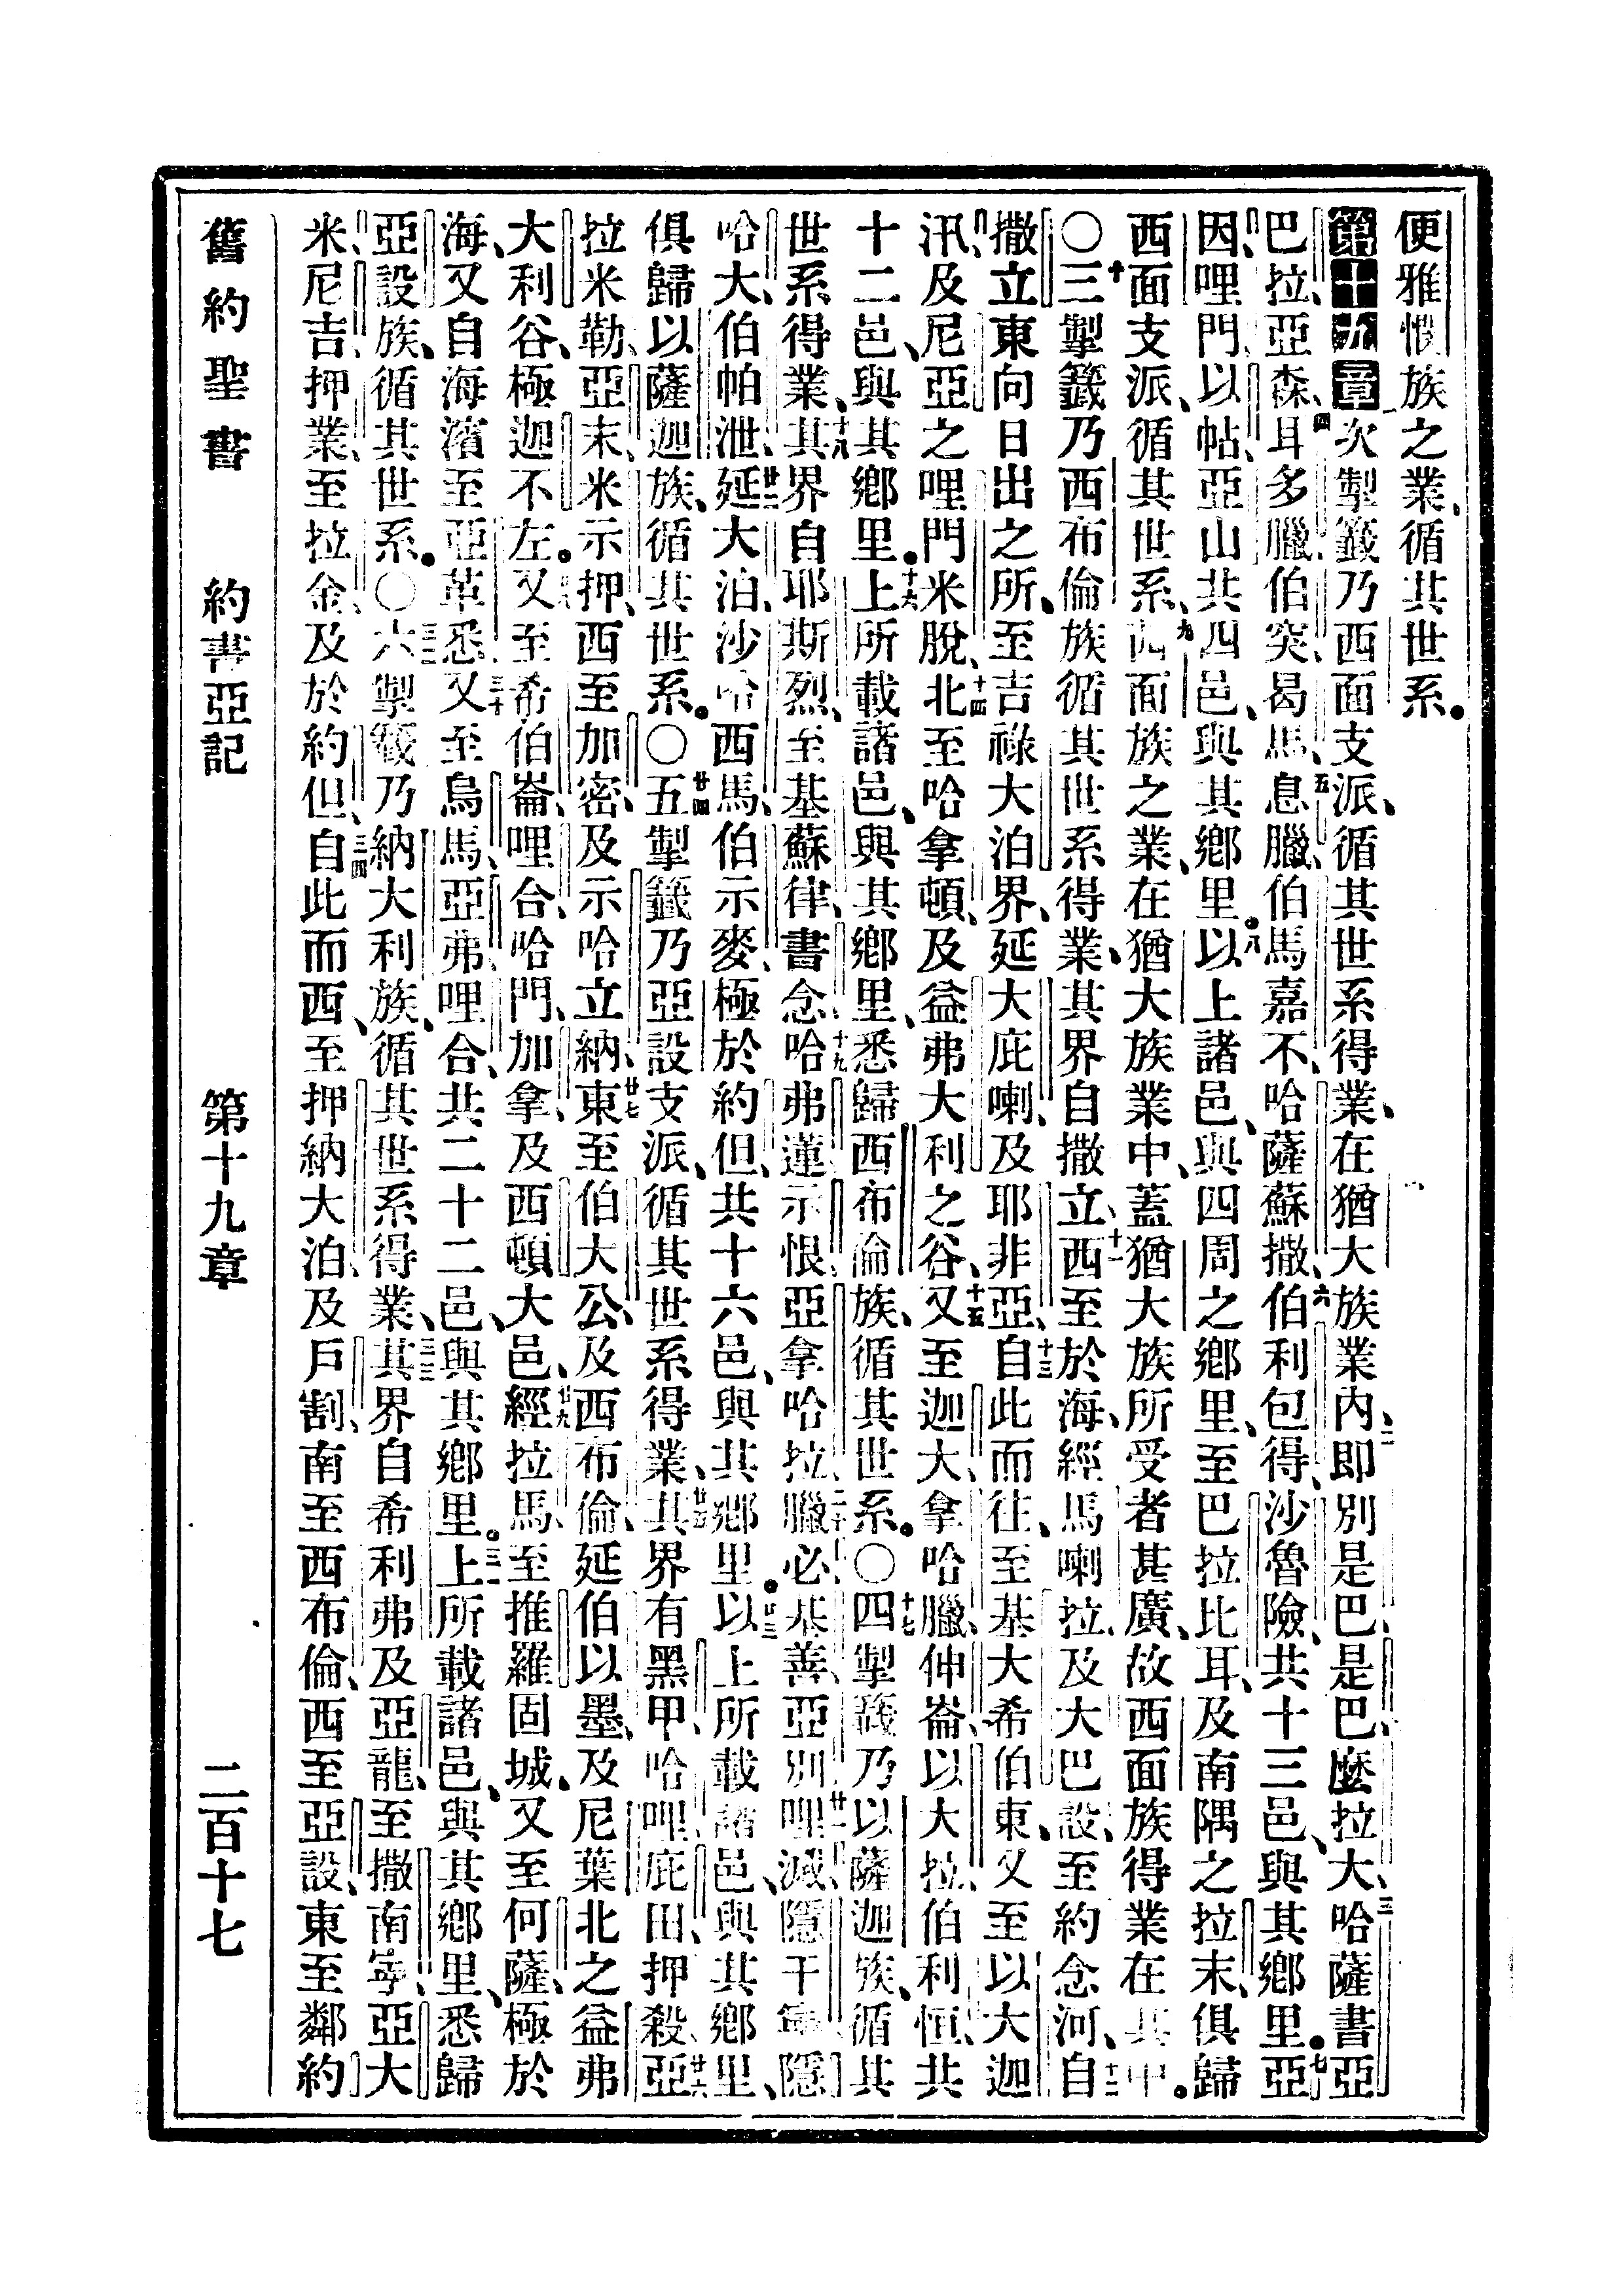 便雅憫族之業、循其世系。
第十九章次掣籤乃西面支派、循其世系得業、在猶大族業內、二即別是巴、是巴、麼拉大、三哈薩書亞、
巴拉、亞森、四耳多臘、伯突、曷馬、五息臘、伯馬嘉不、哈薩蘇撒、六伯利包得、沙魯險、共十三邑、與其鄉里。七亞
因、哩門、以帖、亞山、共四邑、與其鄉里。八以上諸邑、與四周之鄉里、至巴拉比耳、及南隅之拉末、俱歸
西面支派、循其世系、九西面族之業、在猶大族業中、蓋猶大族所受者甚廣、故西面族得業在其中。
○十三掣籤乃西布倫族循其世系得業、其界自撒立、十一西至於海、經馬喇拉、及大巴設、至約念河、十二自
撒立東向日出之所、至吉祿大泊界、延大庇喇、及耶非亞、十三自此而往、至基大希伯東、又至以大迦
汛、及尼亞之哩門米脫、十四北至哈拿頓、及益弗大利之谷、十五又至迦大、拿哈臘、仲崙、以大拉、伯利恒、共
十二邑、與其鄉里。十六上所載諸邑、與其鄉里、悉歸西布倫族、循其世系。○十七四掣籤乃以薩迦族、循其
世系得業、十八其界自耶斯烈、至基蘇律、書念、十九哈弗蓮、示恨、亞拿哈拉、二十臘必、基善、亞別、廿一哩滅、隱干寧、隱
哈大、伯帕泄、廿二延大泊、沙哈西馬、伯示麥、極於約但、共十六邑、與其鄉里。廿三以上所載諸邑、與其鄉里、
俱歸以薩迦族、循其世系。○廿四五掣籤乃亞設支派、循其世系得業、廿五其界有黑甲、哈哩、庇田、押殺、廿六亞
拉米勒、亞末、米示押、西至加密、及示哈立納、廿七東至伯大公、及西布倫、延伯以墨、及尼葉北之益弗
大利谷、極迦不左。又至希伯崙、哩合、哈門、加拿、及西頓大邑、廿九經拉馬、至推羅固城、又至何薩、極於
海、又自海濱至亞革悉、三十又至烏馬、亞弗、哩合、共二十二邑、與其鄉里。三一上所載諸邑、與其鄉里、悉歸
亞設族、循其世系。○三二六掣籤乃納大利族、循其世系得業、三三其界自希利弗、及亞龍、至撒南寧、亞大
米尼吉、押業、至拉金、及於約但、三四自此而西、至押納大泊、及戶割、南至西布倫、西至亞設、東至鄰約
舊約聖書 約書亞記 第十九章 二百十七